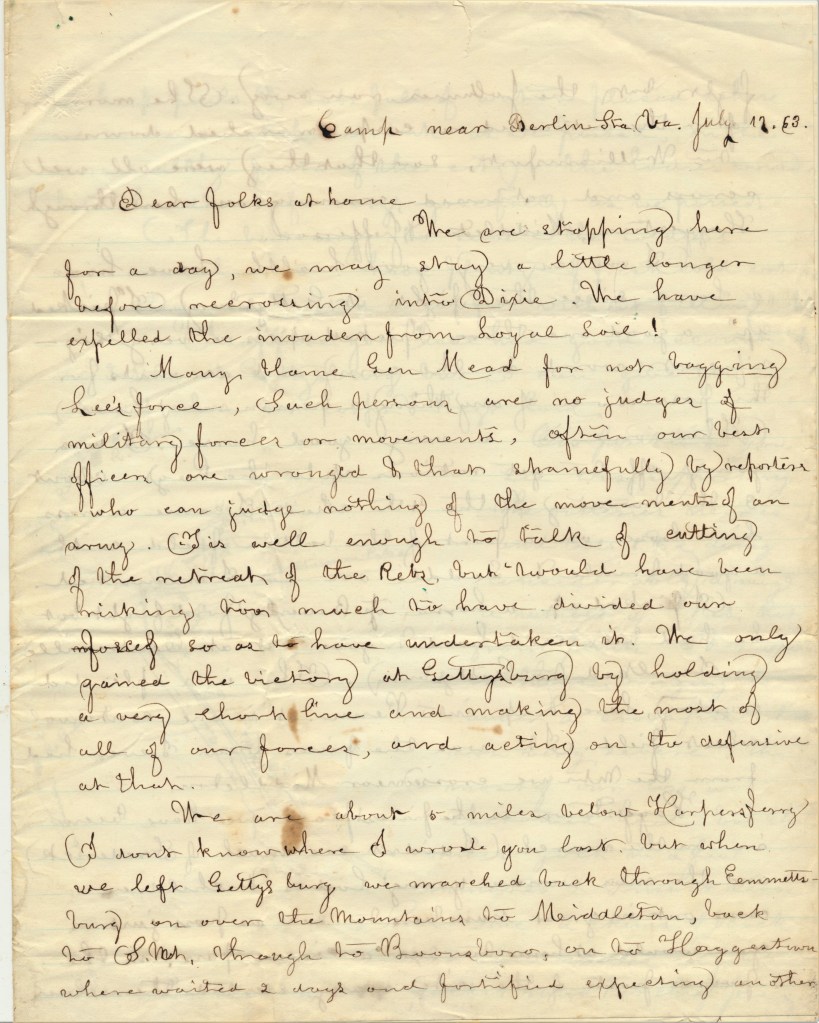 Camp near Berlin Sta Va. July 17. 63.
Dear folks at home
We are stopping here
for a day, we may stay a little longer
before recrossing into Dixie. We have
expelled the invaders from Loyal Soil!
Many blame Gen Mead for not bagging
Lee's force, Such persons are no judges of
military forces or movements, often our best
officers are wronged & that shamefully by reporters
who can judge nothing of the move-ments of an
army. Tis well enough to talk of cutting
of the retreat of the Rebs, but twould have been
risking too much to have divided our
forces so as to have undertaken it. We only
gained the victory at Gettysburg by holding
a very short line and making the most of
all of our forces, and acting on the defensive
at that.
We are about 5 miles below Harpers ferry
(I dont know where I wrote you last. but when
we left Gettysburg we marched back through Eemmetts-
burg on over the Mountains to Meiddleton, back
to S. Mt, through to Boonsboro, on to Haggestown
where waited 2 days and fortified expecting another